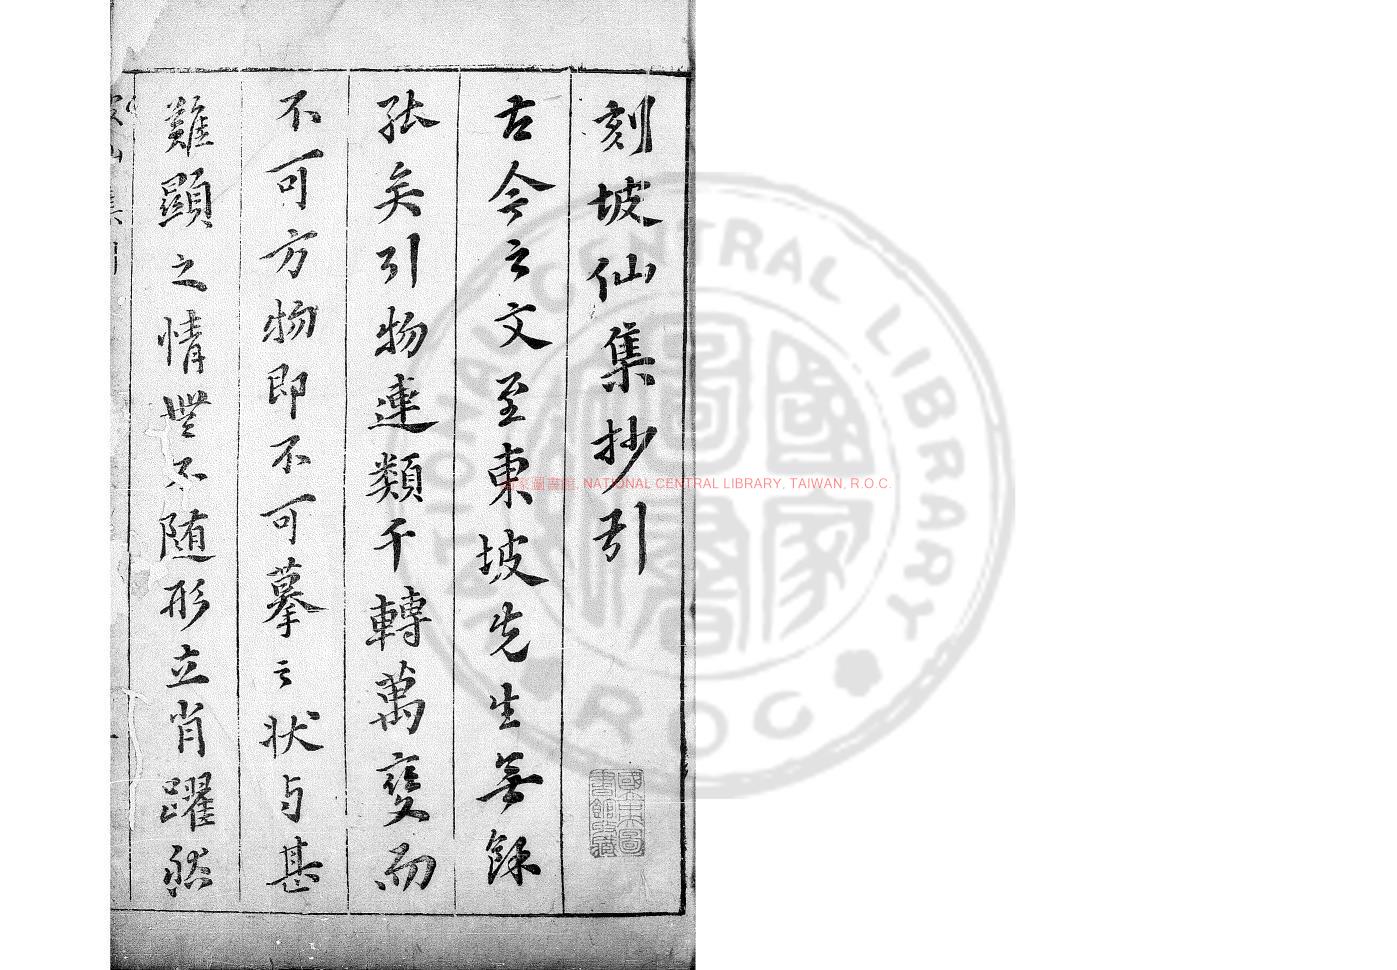 刻坡仙集抄引
古今之文至東坡先生無餘
矣引物連類千轉萬變而
不可方物即不可摹之狀与甚
難顯之情無不随形立肖躍然
國家圖書館藏
NATIONAL CENTRAL LIBRARY
R O C
國家圖書館, NATIONAL CENTRAL LIBRARY, TAIWAN, R.O.C.